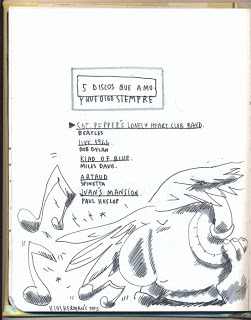 5 DISCOS QUE AMO
Y QUE OIGO SIEMPRE
SGT. PEPPER'S LONELY HEART CLUB BAND.
BEATLES
LIVE 1966
BOB DYLAN
KIND OF BLUE.
MILES DAVIS.
ARTAUD
SPINETTA
JUAN'S MANSION.
PAUL HASLOP